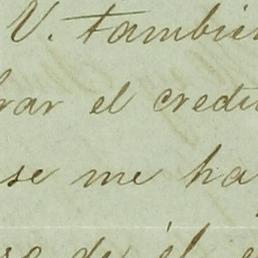 V. tambien
rar el credi
se me ha
de él